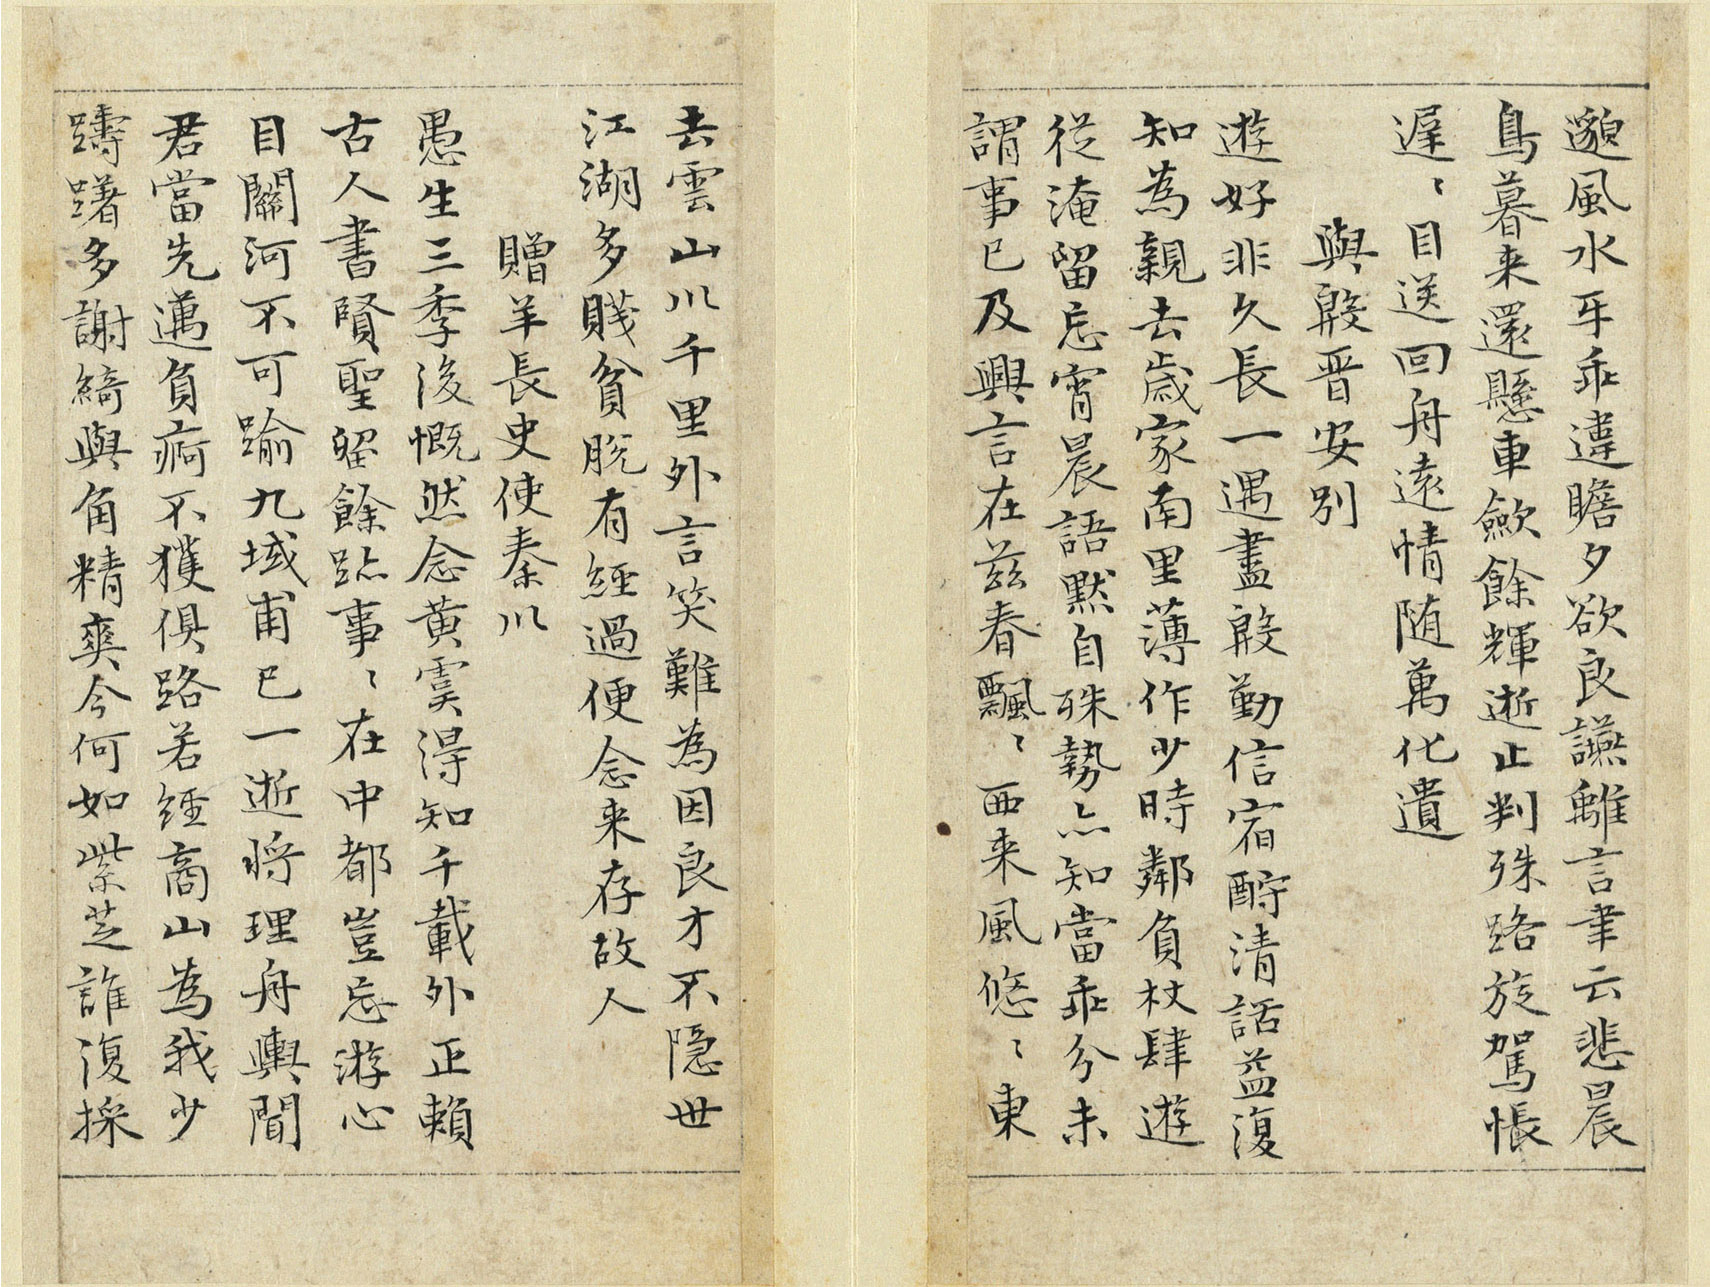 邈風水牙乖違瞻夕欲良讌離言聿云悲晨
鳥暮来還懸車歛餘輝逝止判殊路旋駕悵
遅〻目送回舟遠情随萬化遺
與殷晋安别
遊好非久長一遇盡殷勤信宿酧清話益復
知為親去歳家南里薄作少時鄰負杖肆遊
従淹留忘宵晨語默自殊勢亦知當乖分未
謂事已及興言在茲春飄〻西来風悠〻東
去雲山川千里外言笑難為因良才不隠世
江湖多賤貧脫有經過便念来存故人
贈羊長史使秦川
愚生三季後慨然念黄虞得知千載外正賴
古人書賢聖留餘跡事〻在中都豈忘游心
目關河不可踰九域甫已一逝将理舟輿聞
君當先邁負痾不獲俱路若經商山為我少
躊躇多謝綺與角精爽今何如紫芝誰復採